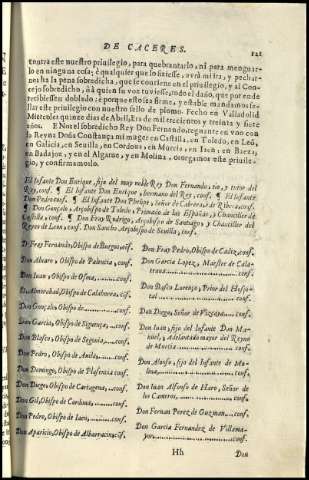 DE CACERES.
121
contra este nuestro priuilegio, para quebrantarlo, ni para menguar-
lo en ninguna cosa; è qualquier que lo fiziesse, avrà mi ira, y pechar-
nes ha la pena sobredicha, que se contiene en el priuilegio, y al Con-
cejo sobredicho, ò à quien su voz tuviesse, todo el daño, que por ende
recibiessen doblado; è porque esto sea firme, y estable mandamos se-
llar este priuilegio con nuestro sello de plomo. Fecho en Valladolid
Miercoles quinze dias de Abril, Era de mil trecientos y treinta y siete
años. E Nos el sobredicho Rey Don Fernando, regnante en vno con
la Reyna Doña Constança mi muger en Castilla, en Toledo, en Leon,
en Galicia, en Seuilla, en Cordoua, en Murcia, en Iaen, en Baeza,
en Badajoz, y en el Algarue, y en Molina, otorgamos este priuile-
gio, y confirmamoslo.
El Infante Don Enrique, fijo del muy noble Rey Don Fernando, tio, y tutor del
Rey, conf. ¶ El Infante Don Enrique, hermano del Rey, conf. ¶ El Infante
Don Pedro, conf. ¶ El Infante Don Phelipe, Señor de Cabrera, è de Ribera, conf.
Don Gonçalo, Arçobispo de Toledo, Primado de las Españas, y Chanciller de
Castilla, conf. Don Fray Rodrigo, Arçobispo de Santiago, y Chanciller del
Reyno de Leon, conf. Don Sancho, Arçobispo de Seuilla, conf.
D. Fray Fernando, Obispo de Burgos, cōf.
Don Aluaro, Obispo de Palencia, conf.
Don Iuan, Obispo de Osma, ......... conf.
D. Obispo de Calahorra, cōf.
Don Gonçalo, Obispo de ......... conf.
Don Garcia, Obispo de Siguença, ... conf.
Don Blasco, Obispo de Segouia, ...... conf.
Don Pedro, Obispo de Auila, ......... conf.
Don Domingo, Obispo de Plasencia conf.
Don Diego, Obispo de Cartagena, .. conf.
Don Gil, Obispo de Cordoua, ......... conf.
Don Pedro, Obispo de Iaen, ......... conf.
Don Aparicio, Obispo de Albarracin, cōf.
Don Fray Pedro, Obispo de Cadiz, conf.
Don Garcia Lopez, Maestre de Cala-
traua ......... conf.
Don Lorenço, Prior del Hospi-
tal ......... conf.
Don Diego, Señor de Vizcaya ...... conf.
Don Iuan, fijo del Infante Don Ma-
nuel, Adelantado mayor del Reyno
de Murcia ......... conf.
Don Alonso, fijo del Infante de Mo-
lina, ......... conf.
Don Iuan Alfonso de Haro, Señor de
los Cameros, ......... conf.
Don Fernan Perez de Guzman .... conf.
Don Garcia Fernandez de Villama-
yor, ......... conf.
Hh
Don